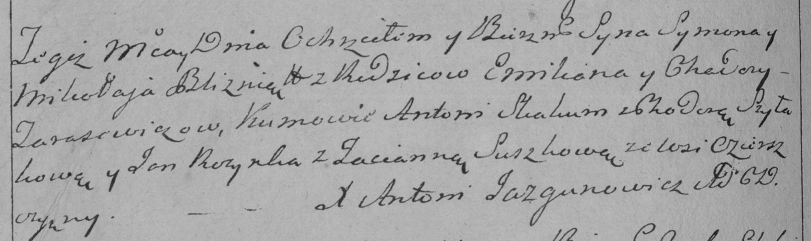 Tegoż Mca y Dnia Ochrzciłem y Bierzm Syna Symona y
Mikołaja Bliźnięta z Rodzicow Emiliana y Chwedory
Tarasewiczow, Kumowie Antoni Skakum z Chodorą Szyła
kową y Jan Rozynka z Tacianną Suszkową ze wsi Czersz
czyzny.
X Antoni Jazgunowicz